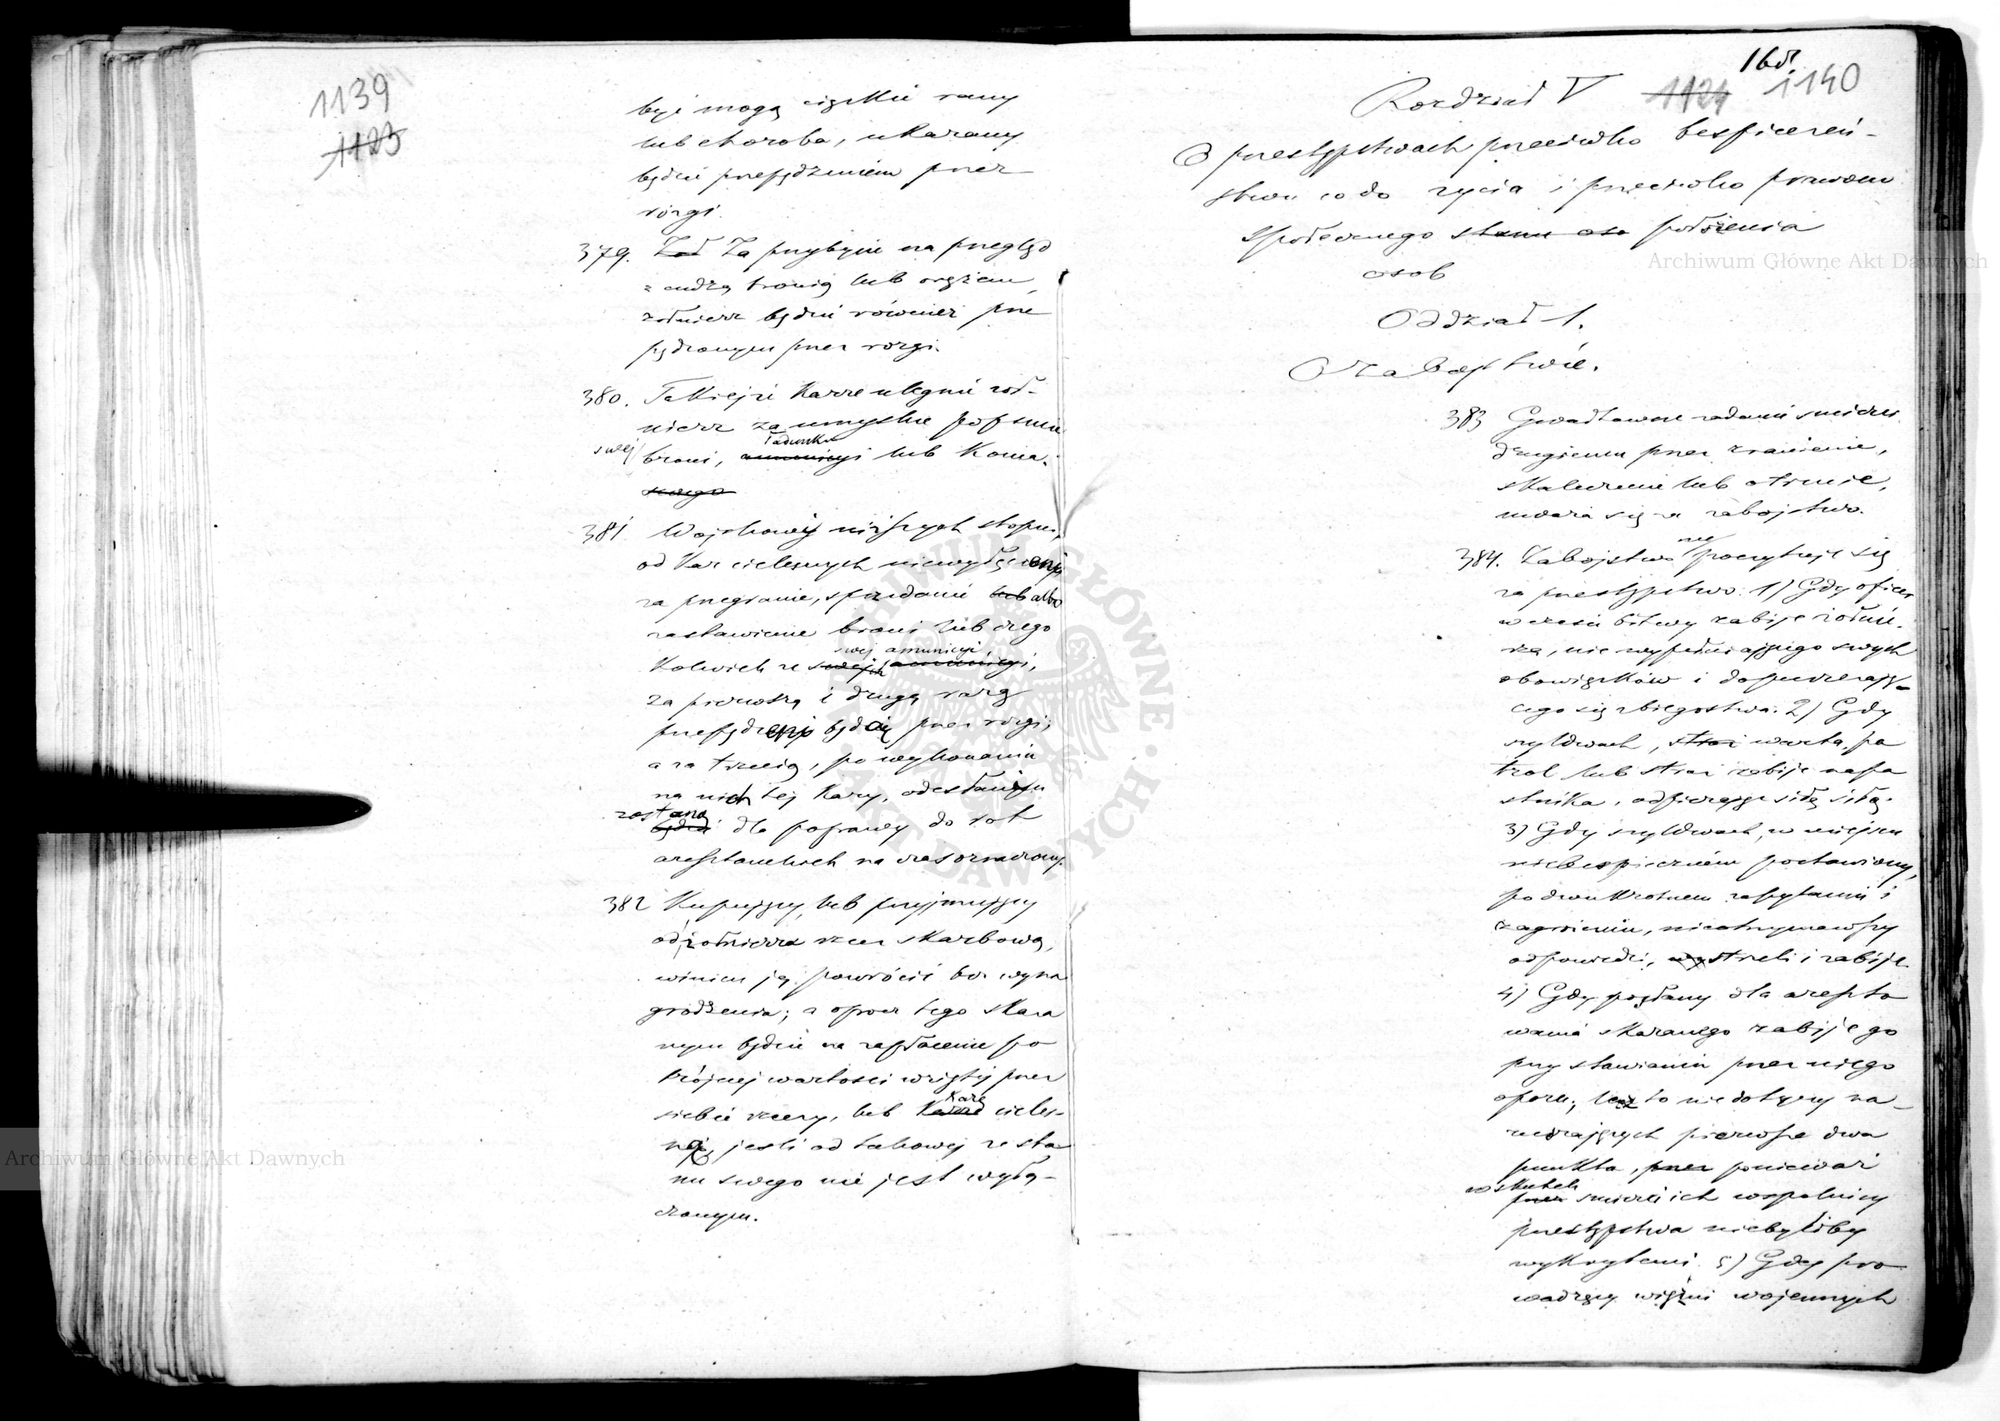 1139
1123
być mogą ciężkie rany
lub choroba, ukarany
będzie przepędzeniem przez
rózgi.
379. Zoł Za przybycie na przegląd
z cudzą bronią lub orężem,
żołnierz będzie również prze
pędzonym przez rózgi.
380. Takiejże karze ulegnie żoł-
nierz za umyślne popsucie
swej broni, amunicyi ładunku lub konia.
swego
381. Wojskowi niższych stopni,
od kar cielesnych niewyłączeni
za przegranie, sprzedanie lub albo
zastawienie broni lub czego
kolwiek ze swej amunicyi,
swych amunicyi,
za pierwszą i drugą razą
przepędzeni będą przez rózgi;
a za trzecią, po wykonaniu
na nich tej kary, odesłani
zostaną będzie dla poprawy do rot
aresztanckich na czas oznaczony.
382 Kupujący lub przyjmujący
od żołnierza rzecz skarbową,
winien ją powrócić bez wyna
grodzenia; a oprócz tego skaza
nym będzie na zapłacenie po
trójnej wartości wziętej przez
siebie rzeczy, lub karze karę cieles-
ną, jeśli od takowej ze sta
nu swego nie jest wyłą-
czonym.
1124 1140
Rozdział V
O przestępstwach przeciwko bespieczeń-
stwu co do życia i przeciwko prawom
społecznego stanu oso położenia
osob
Oddział 1.
O zabójstwie.
383 Gwałtowne zadanie śmierci
drugiemu przez zranienie,
skaleczenie lub otrucie,
uważa się za zabójstwo.
384. Zabojstwo nie poczytuje się
za przestępstwo: 1) Gdy oficer
w czasie bitwy zabije żołnie-
rza, nie wypełniającego swych
obowiązków i dopuszczają-
cego się zbiegostwa. 2) Gdy
szyldwach, straż warta, pa
trol lub straż zabije napa
stnika, odpierając siłę siłą.
3) Gdy szyldwach, w miejscu
niebespiecznem postawiony,
po dwukrotnem zapytaniu i
zagrożeniu, nieotrzymawszy
odpowiedzi, wystrzeli i zabije
4) Gdy posłany dla areszto
wania skazanego zabije go
przy stawianiu przez niego
oporu; lecz to niedotyczy na-
ruszających pierwsze dwa
punkta, przez ponieważ
wskutek przez śmierci ich wspólnicy
przestępstwa niebyliby
wykrytemi. 5) Gdy pro
wadzący więźni wojennych
Archiwum Główne Akt Dawnych
Archiwum Główne Akt Dawnych
ARCHIWUM GŁÓWNE AKT DAWNYCH